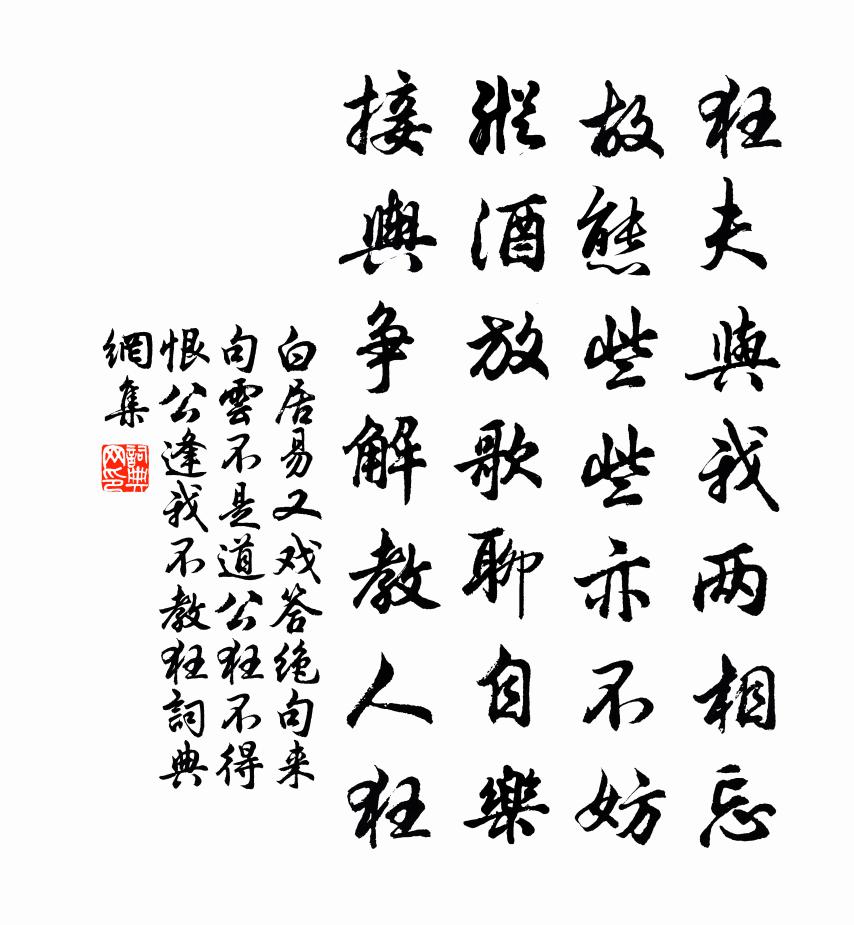 狂夫與我两相忘
故態些些亦不妨
縱酒放歌聊自樂
接輿争解教人狂
白居易又戏答绝句来
句雲不是道公狂不得
恨公逢我不教狂詞典
網集
詞典网印